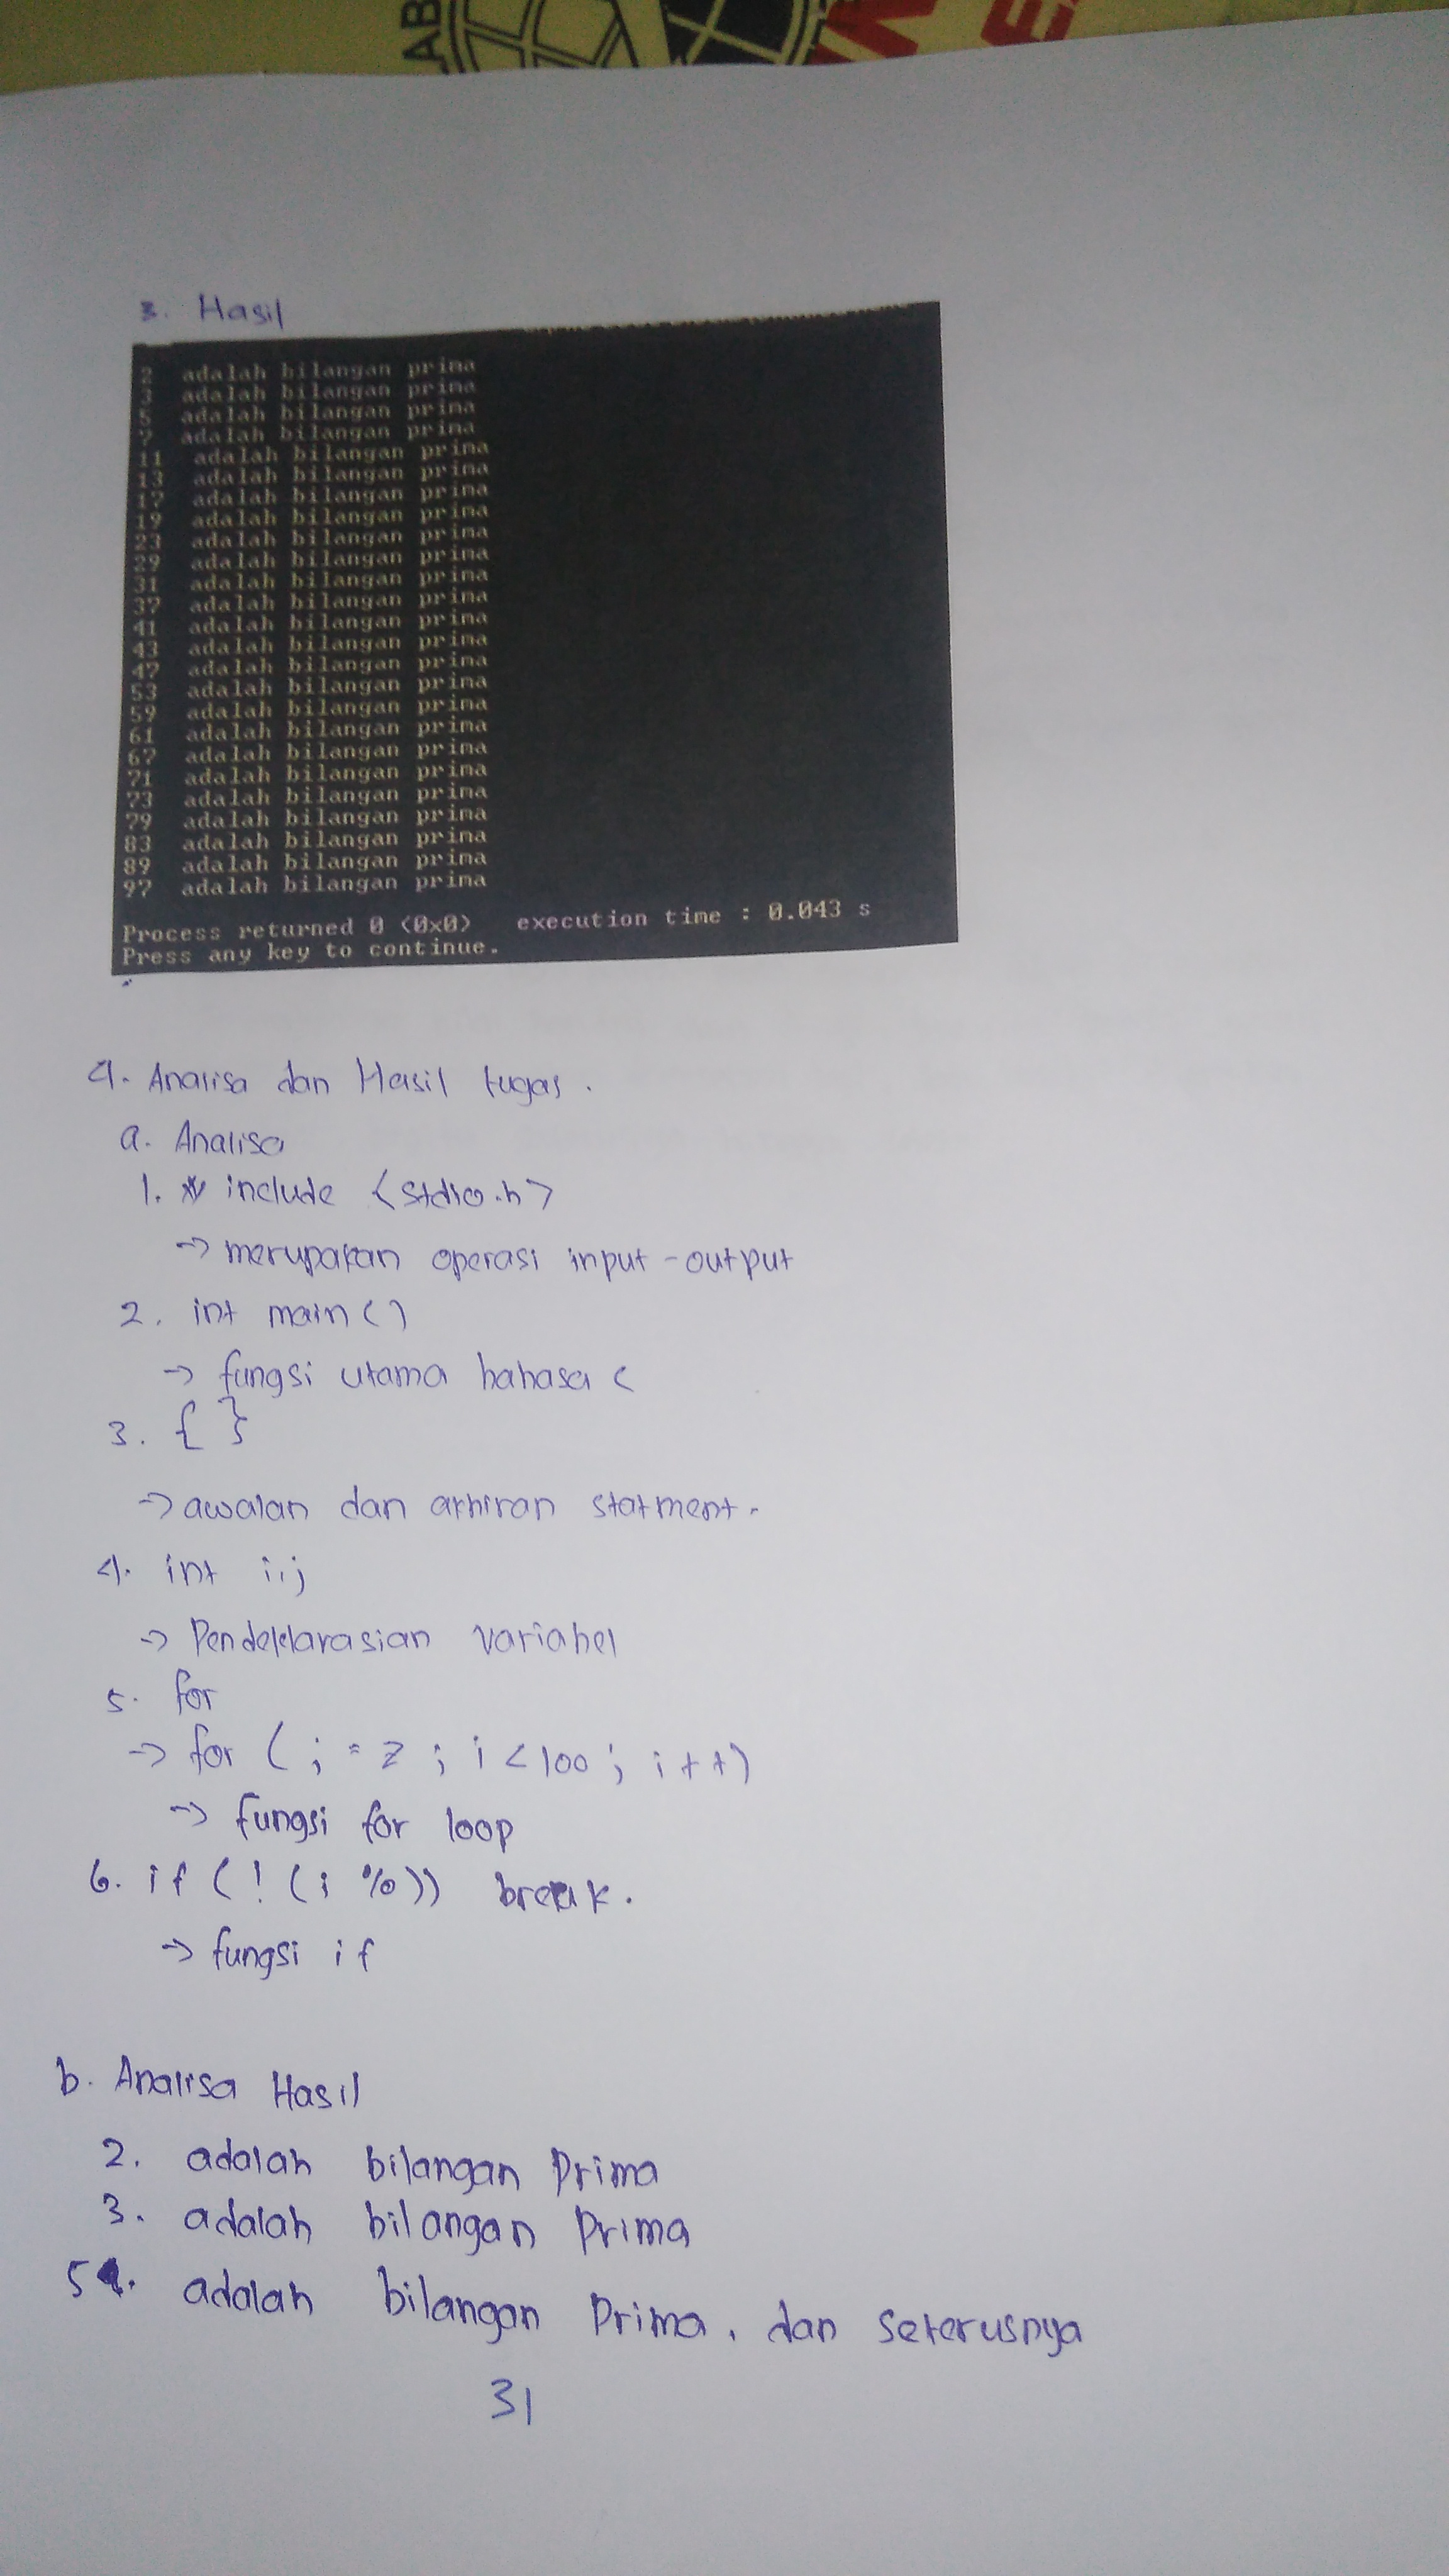 AB
3. Hasil
2 adalah bilangan prima
3 adalah bilangan prima
5 adalah bilangan prima
7 adalah bilangan prima
11 adalah bilangan prima
13 adalah bilangan prima
17 adalah bilangan prima
19 adalah bilangan prima
23 adalah bilangan prima
29 adalah bilangan prima
31 adalah bilangan prima
37 adalah bilangan prima
41 adalah bilangan prima
43 adalah bilangan prima
47 adalah bilangan prima
53 adalah bilangan prima
59 adalah bilangan prima
61 adalah bilangan prima
67 adalah bilangan prima
71 adalah bilangan prima
73 adalah bilangan prima
79 adalah bilangan prima
83 adalah bilangan prima
89 adalah bilangan prima
97 adalah bilangan prima
Process returned 0 (0x0) execution time : 0.043 s
Press any key to continue.
4. Analisa dan Hasil tugas.
a. Analisa
1. # include <stdio.h>
-> merupakan operasi input-output
2. int main()
-> fungsi utama bahasa C
3. { }
-> awalan dan akhiran statment.
4. int i,j
-> Pendeklarasian variabel
5. for
-> for (; = 2 ; i < 100 ; i++)
-> fungsi for loop
6. if (! (i %)) break.
-> fungsi if
b. Analisa Hasil
2. adalah bilangan Prima
3. adalah bilangan Prima
5. adalah bilangan Prima, dan seterusnya
31